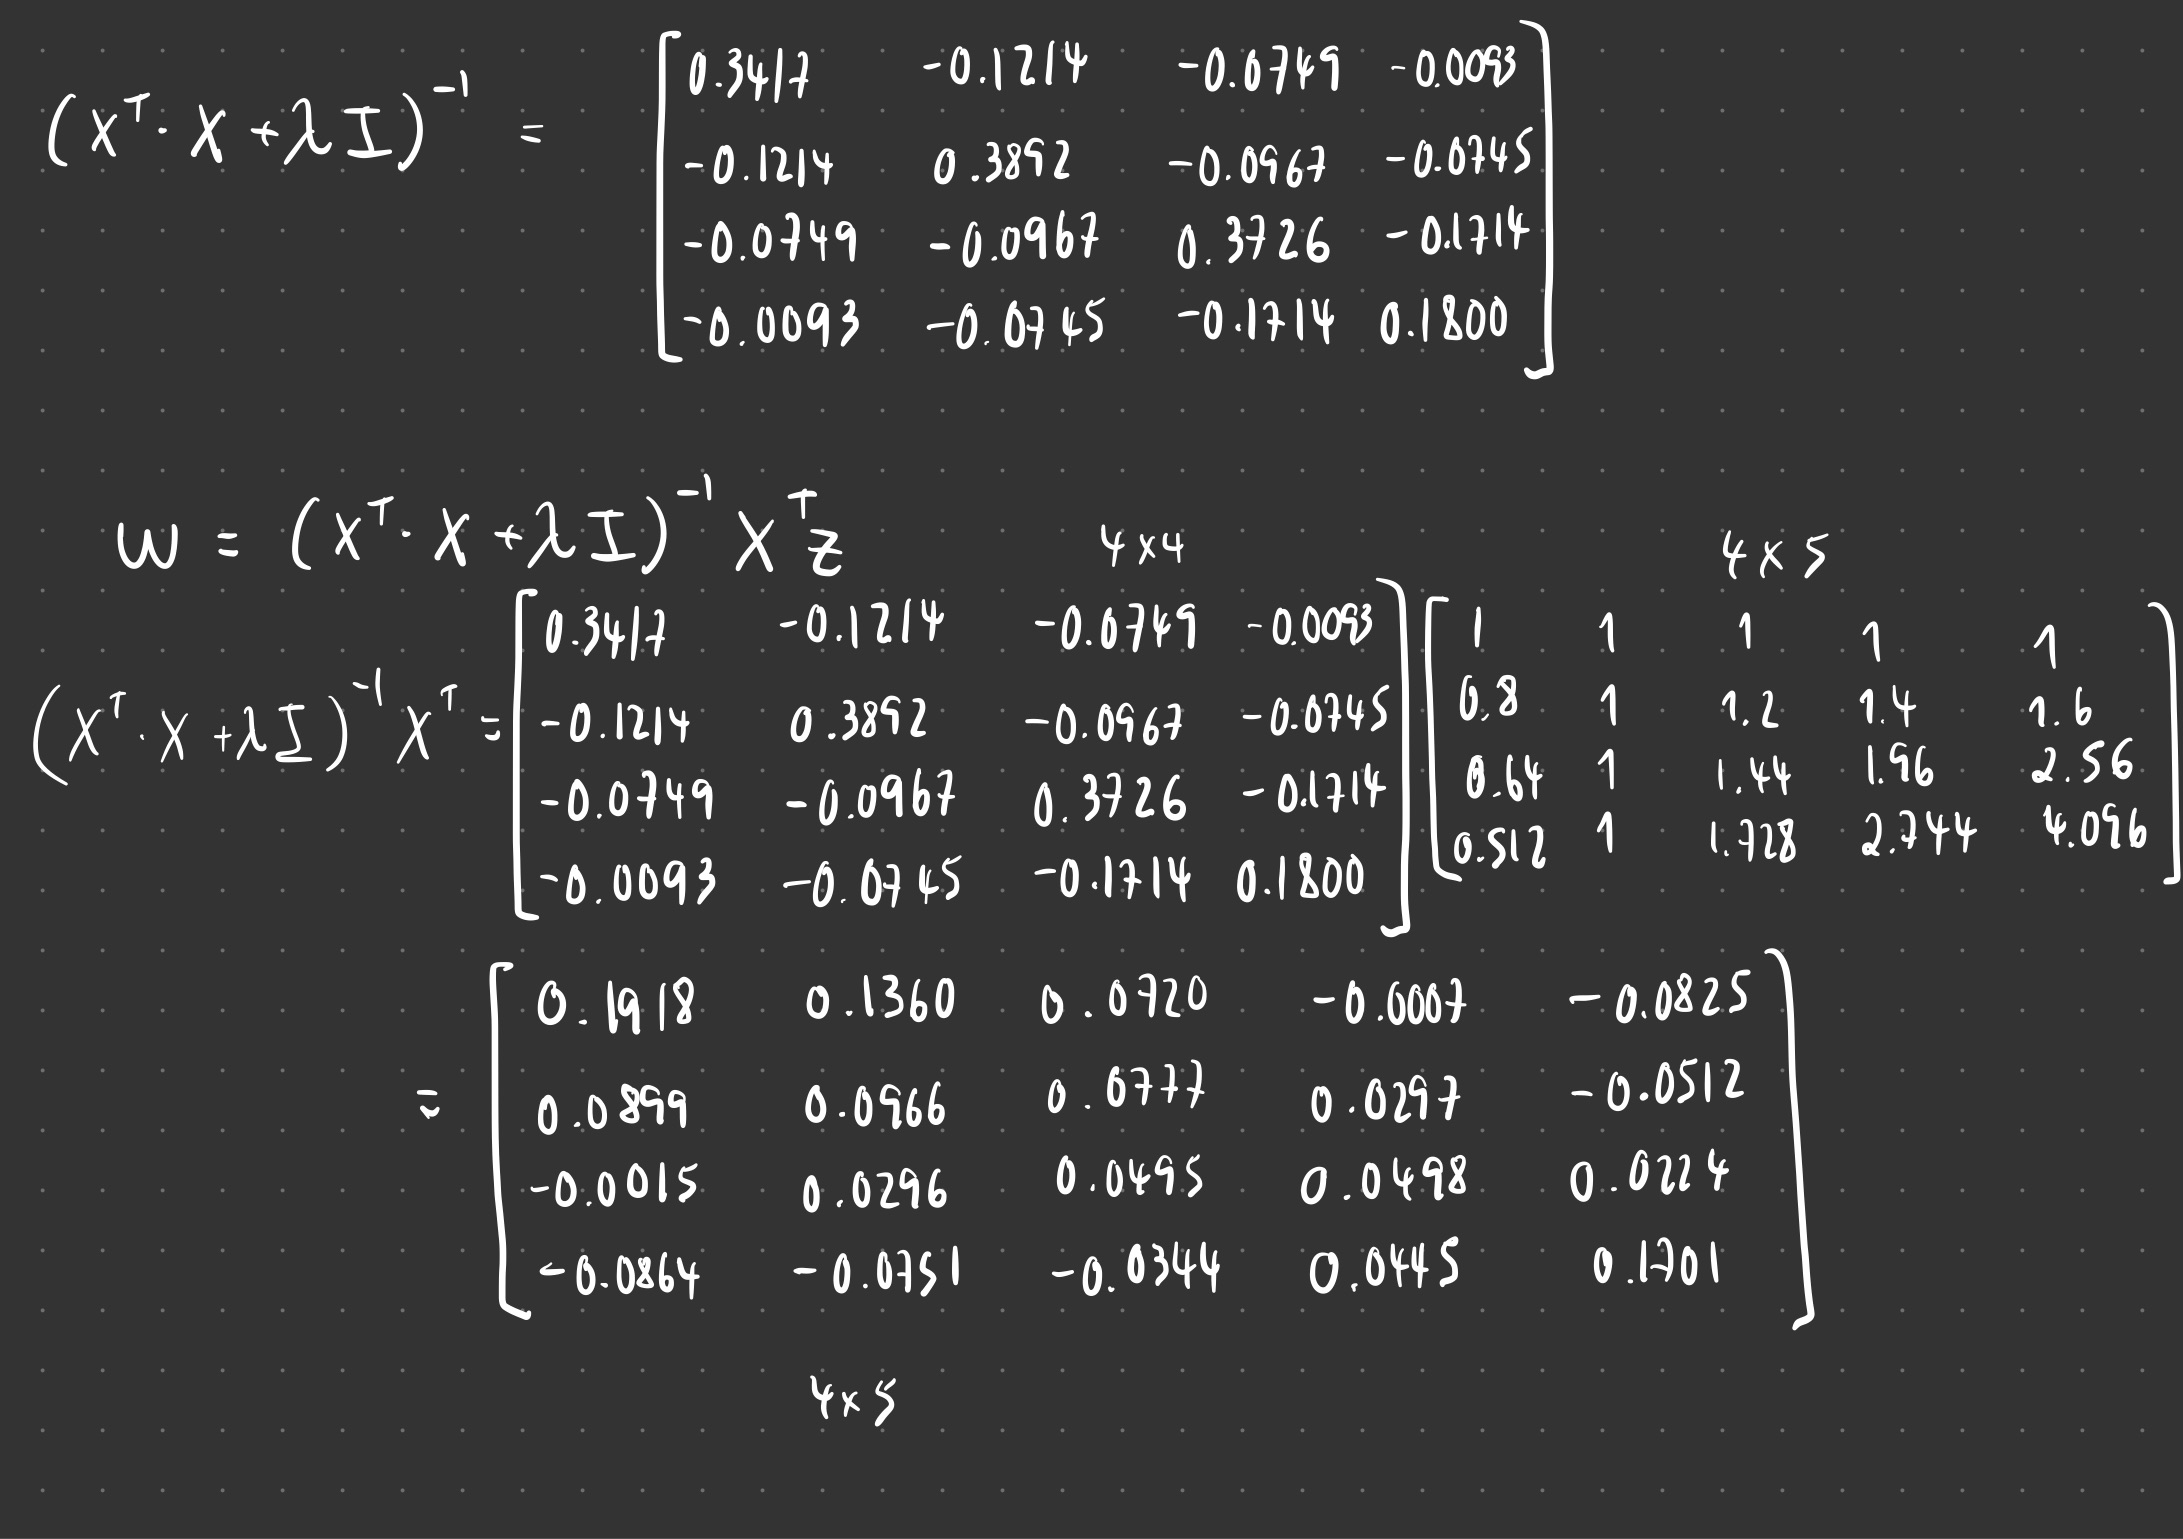 (X^T · X + λI)^-1 = [ 0.3417 -0.1214 -0.0749 -0.0093
-0.1214 0.3892 -0.0967 -0.0745
-0.0749 -0.0967 0.3726 -0.1714
-0.0093 -0.0745 -0.1714 0.1800 ]
w = (X^T · X + λI)^-1 X^T z 4x4 4x5
(X^T · X + λI)^-1 X^T = [ 0.3417 -0.1214 -0.0749 -0.0093 ] [ 1 1 1 1 1
-0.1214 0.3892 -0.0967 -0.0745 0.8 1 1.2 1.4 1.6
-0.0749 -0.0967 0.3726 -0.1714 0.64 1 1.44 1.96 2.56
-0.0093 -0.0745 -0.1714 0.1800 0.512 1 1.728 2.744 4.096 ]
= [ 0.1918 0.1360 0.0720 -0.0007 -0.0825
0.0899 0.0966 0.0777 0.0297 -0.0512
-0.0015 0.0296 0.0495 0.0498 0.0224
-0.0864 -0.0751 -0.0344 0.0445 0.1701 ]
4x5